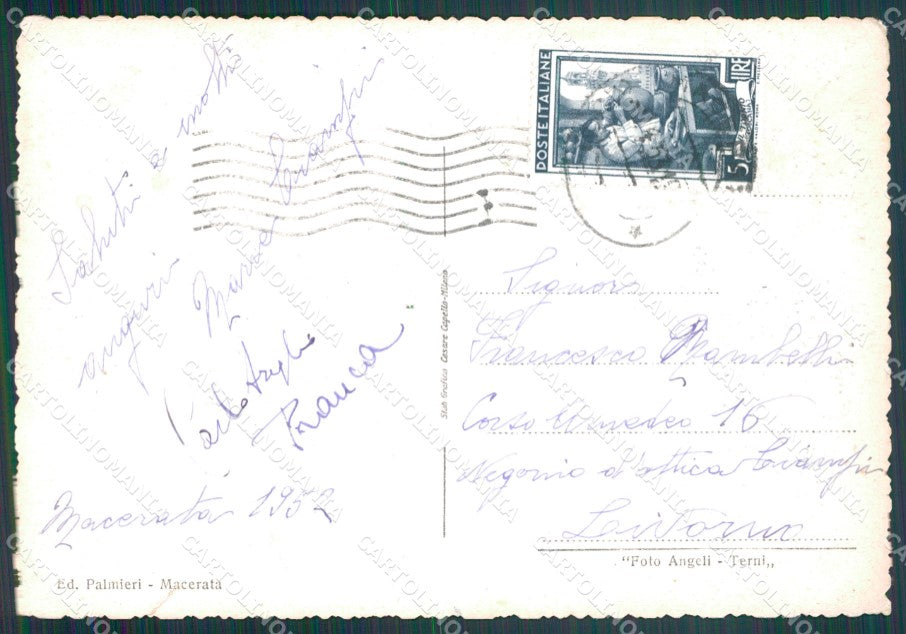 Saluti e molti
auguri
Maria Ciampi
Carlo Azeglio
Franca
Macerata 1952
Ed. Palmieri - Macerata
Stab Grafico Cesare Capello-Milano
POSTE ITALIANE
LIRE
5
Signora
Francesca Mambelli
Corso Amedeo 16
Negozio d'ottica Ciampi
Livorno
“Foto Angeli - Terni„
CARTOLINOMANIA